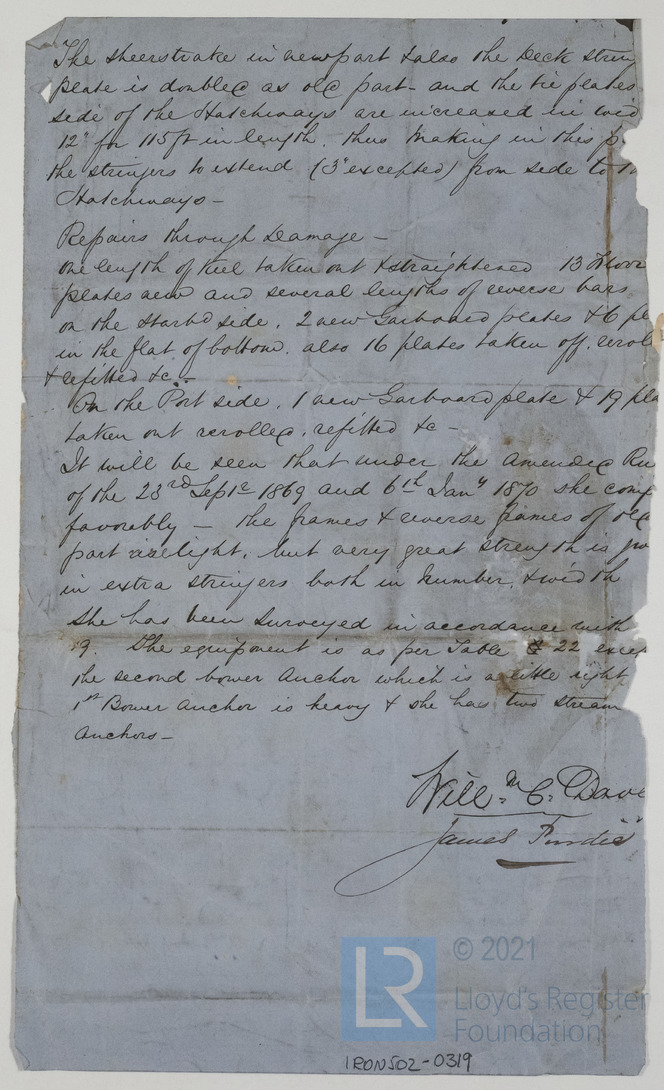 The sheerstrake in new part & also the Deck strin
plate is doubled as old part - and the tie plates
side of the Hatchways are increased in wid
12" for 115ft in length. thus making in this p
the stringers to extend (3" excepted) from side to
Hatchways -
Repairs through Damage -
one length of keel taken out & straightened 13 Floor
plates new and several lengths of reverse bars
on the Starbd side. 2 new Garboard plates & 6 pl
in the flat of bottom. also 16 plates taken off. reroll
& refitted &c. -
On the Port side. 1 new Garboard plate & 19 pla
taken out rerolled. refitted &c -
It will be seen that under the amended Ru
of the 23rd Septr 1869 and 6th Jany 1870 she comp
favorably - the frames & reverse frames of old
part are light. but very great strength is
in extra stringers both in number & width
She has been surveyed in accordance with
9. The equipment is as per Table 22 excep
the second bower Anchor which is a little light
1st Bower Anchor is heavy & she has two stream
Anchors -
Willm C. Dav
James Purdie
LR
© 2021
Lloyd's Register
Foundation
IRON502-0319